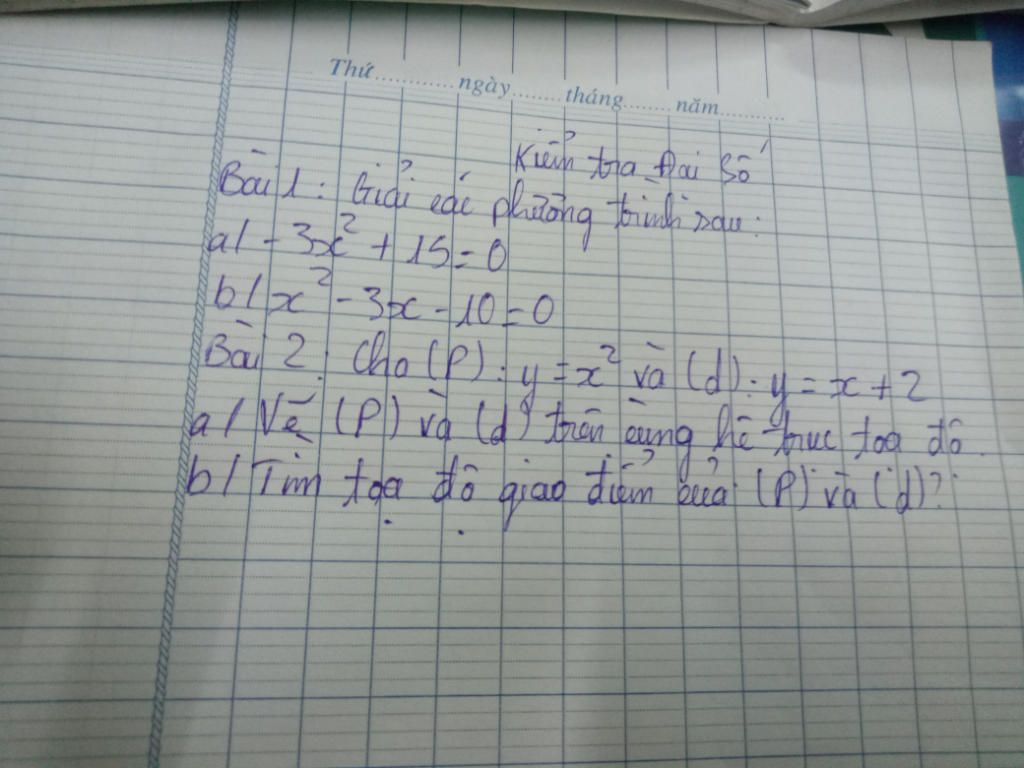 Thứ............ngày........tháng........năm...........
Kiểm tra Đại Số
Bài 1: Giải các phương trình sau:
a/ -3x² + 15 = 0
b/ x² - 3x - 10 = 0
Bài 2: Cho (P): y = x² và (d): y = x + 2
a/ Vẽ (P) và (d) trên cùng hệ trục toạ độ.
b/ Tìm tọa độ giao điểm của (P) và (d)?